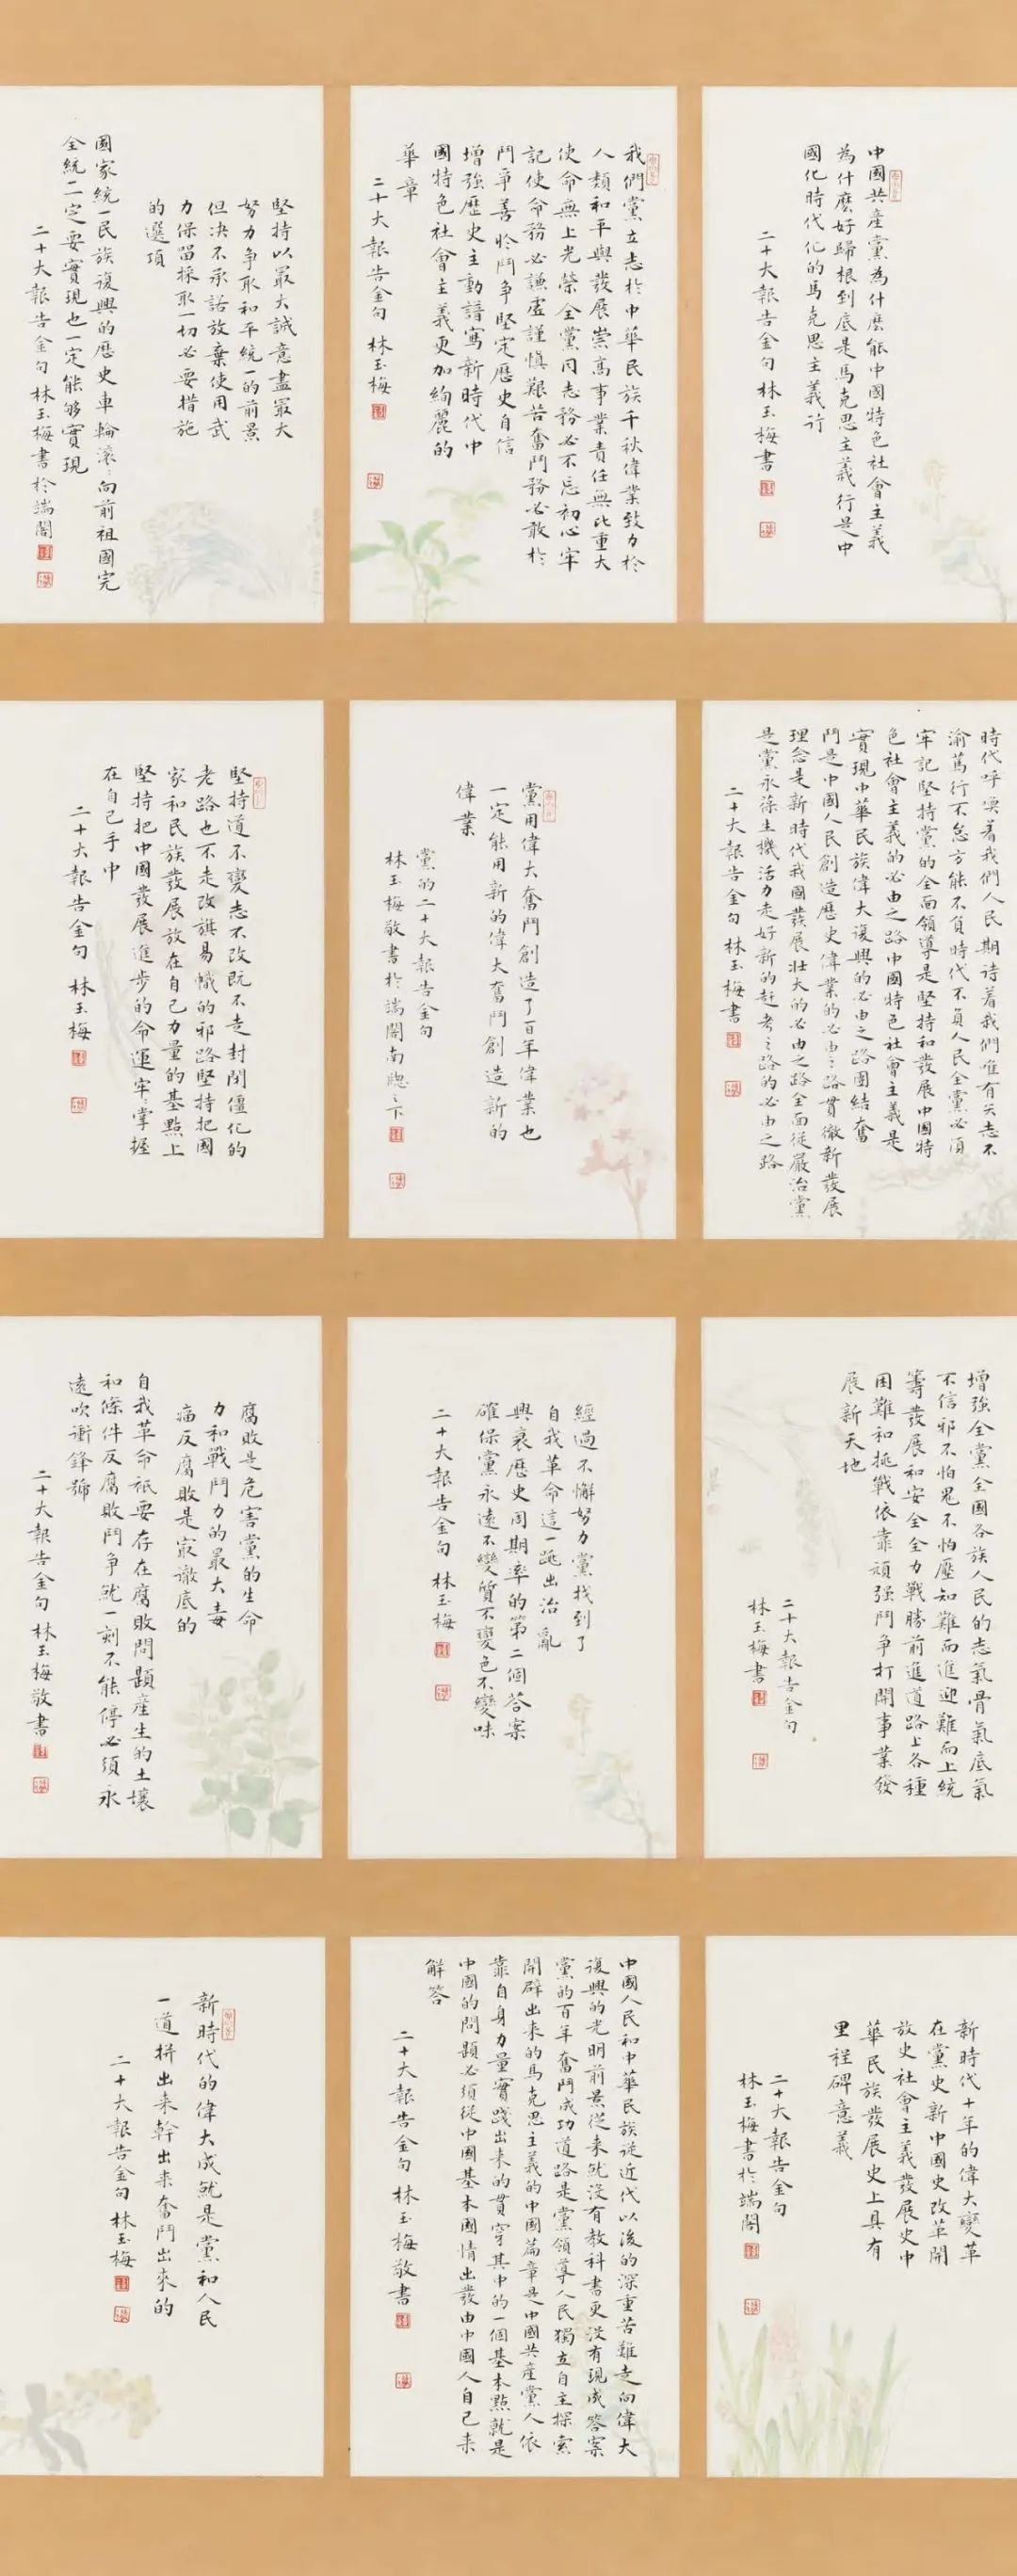 中國共產黨為什麼能中國特色社會主義
為什麼好歸根到底是馬克思主義行是中
國化時代化的馬克思主義行
二十大報告金句 林玉梅書
我們黨立志於中華民族千秋偉業致力於
人類和平與發展崇高事業責任無比重大
使命無上光榮全黨同志務必不忘初心牢
記使命務必謙虛謹慎艱苦奮鬥務必敢於
鬥爭善於鬥爭堅定歷史自信
增強歷史主動譜寫新時代中
國特色社會主義更加絢麗的
華章
二十大報告金句 林玉梅
堅持以最大誠意盡最大
努力爭取和平統一的前景
但決不承諾放棄使用武
力保留採取一切必要措施
的選項
國家統一民族復興的歷史車輪滾滾向前祖國完
全統一一定要實現也一定能够實現
二十大報告金句 林玉梅書於端閣
時代呼喚着我們人民期待着我們唯有矢志不
渝篤行不怠方能不負時代不負人民全黨必須
牢記堅持黨的全面領導是堅持和發展中國特
色社會主義的必由之路中國特色社會主義是
實現中華民族偉大復興的必由之路團結奮
鬥是中國人民創造歷史偉業的必由之路貫徹新發展
理念是新時代我國發展壯大的必由之路全面從嚴治黨
是黨永葆生機活力走好新的赶考之路的必由之路
二十大報告金句 林玉梅書
黨用偉大奮鬥創造了百年偉業也
一定能用新的偉大奮鬥創造新的
偉業
黨的二十大報告金句
林玉梅敬書於端閣南牕之下
堅持道不變志不改既不走封閉僵化的
老路也不走改旗易幟的邪路堅持把國
家和民族發展放在自己力量的基點上
堅持把中國發展進步的命運牢牢掌握
在自己手中
二十大報告金句 林玉梅
增強全黨全國各族人民的志氣骨氣底氣
不信邪不怕鬼不怕壓知難而進迎難而上統
籌發展和安全全力戰勝前進道路上各種
困難和挑戰依靠頑強鬥爭打開事業發
展新天地
二十大報告金句
林玉梅書
經過不懈努力黨找到了
自我革命這一跳出治亂
興衰歷史周期率的第二個答案
確保黨永遠不變質不變色不變味
二十大報告金句 林玉梅
腐敗是危害黨的生命
力和戰鬥力的最大毒
瘤反腐敗是最徹底的
自我革命衹要存在腐敗問題產生的土壤
和條件反腐敗鬥爭就一刻不能停必須永
遠吹衝鋒號
二十大報告金句 林玉梅敬書
新時代十年的偉大變革
在黨史新中國史改革開
放史社會主義發展史中
華民族發展史上具有
里程碑意義
二十大報告金句
林玉梅書於端閣
中國人民和中華民族從近代以後的深重苦難走向偉大
復興的光明前景從來就沒有教科書更沒有現成答案
黨的百年奮鬥成功道路是黨領導人民獨立自主探索
開辟出來的馬克思主義的中國篇章是中國共產黨人依
靠自身力量實踐出來的貫穿其中的一個基本點就是
中國的問題必須從中國基本國情出發由中國人自己來
解答
二十大報告金句 林玉梅敬書
新時代的偉大成就是黨和人民
一道拼出來幹出來奮鬥出來的
二十大報告金句 林玉梅